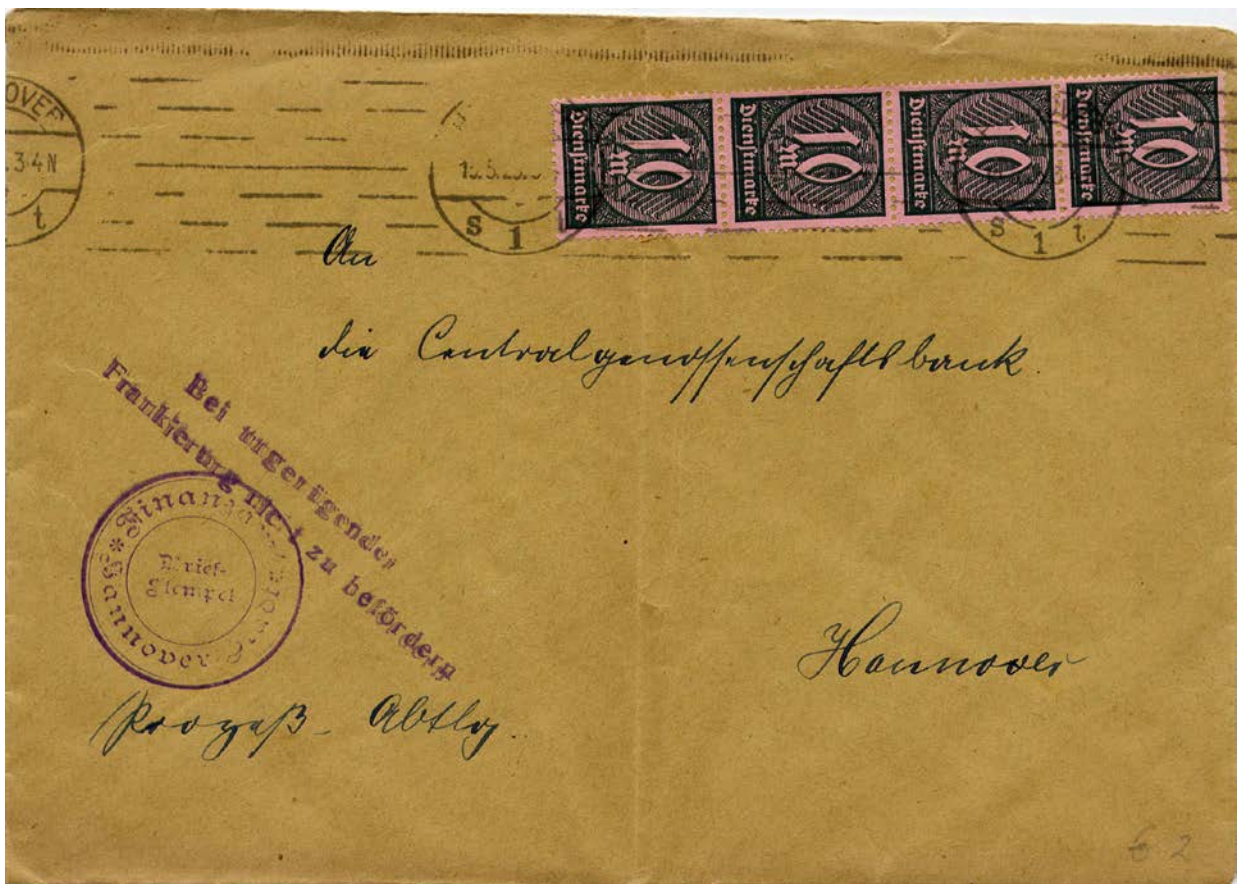 OVER
3-4N
t
S 1
S 1 t
10 M
Dienstmarke
10 M
Dienstmarke
10 M
Dienstmarke
10 M
Dienstmarke
An
die Centralgenossenschaftsbank.
Bei ungenügender
Frankierung nicht zu befördern
Finanzamt
Hannover
Brief-
Stempel
Hannover
Prozeß-Abtlg.
€ 2